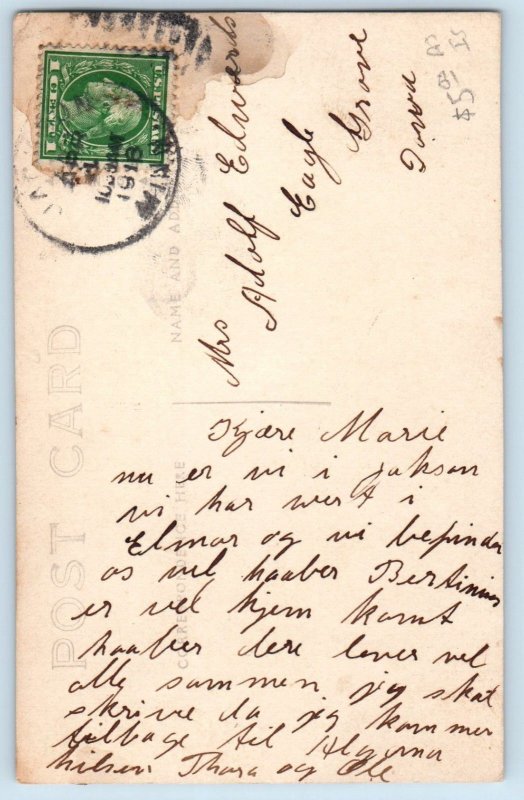 POST CARD
CORRESPONDENCE HERE
NAME AND ADD
U.S. POSTAGE
1 CENT 1
MINN
1918
$5.00
Mrs Adolf Edwards
Eagle Grove
Iowa
Kjære Marie
nu er vi i jakson
vi har wert i
Elmor og vi befinder
os vel haaber Bertinius
er vel hjem komt
haaber dere lever vel
alle sammen jeg skal
skrive da jeg kommer
tilbage til Algona
hilsen Thora og Ole